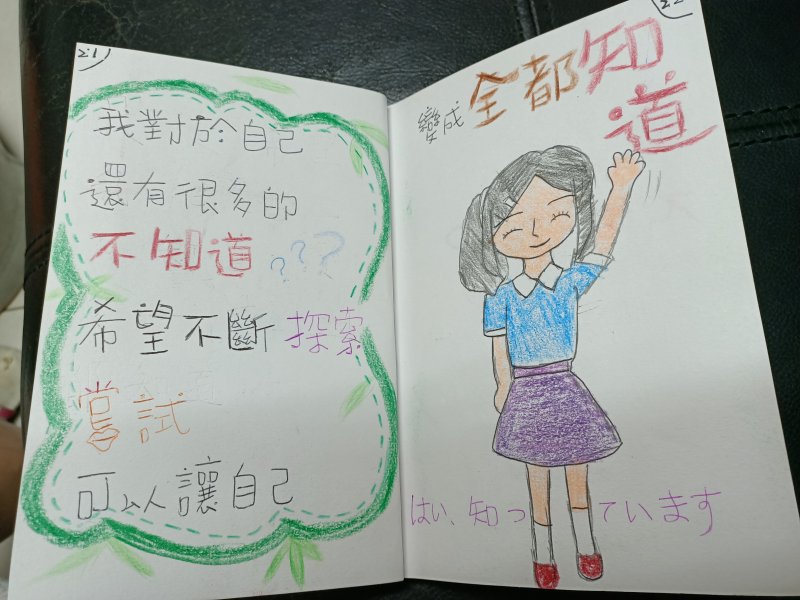 21
我對於自己
還有很多的
不知道???
希望不斷探索
嘗試
可以讓自己
22
變成全都知道
はい、知っています